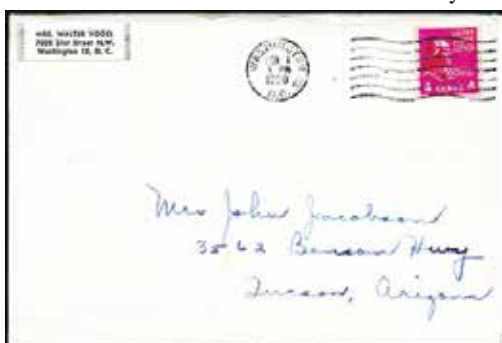 MRS. WALTER VOGEL
Street N.W.
Washington 12, D. C.
WASHINGTON
D.C.
4 CENTS 4
Mrs John Jacobson
3562 Benson Hwy
Tucson, Arizona